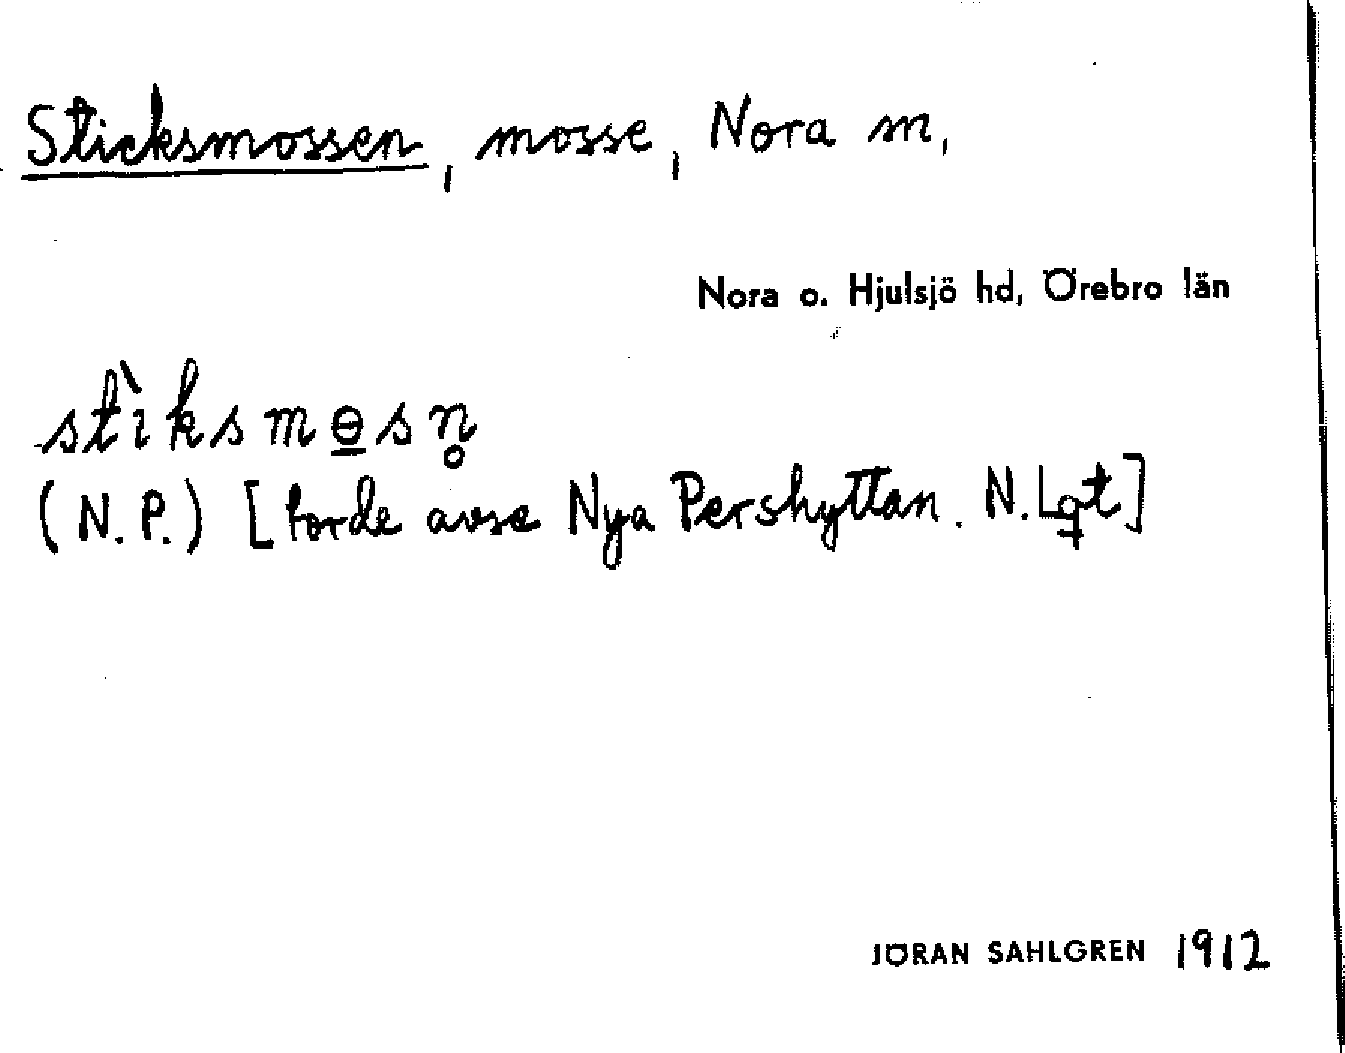 Sticksmossen, mosse, Nora m,
Nora o. Hjulsjö hd, Örebro län
stìksmɵsn̥
(N.P.) [torde avse Nya Pershyttan. N.Lgt]
JÖRAN SAHLGREN 1912